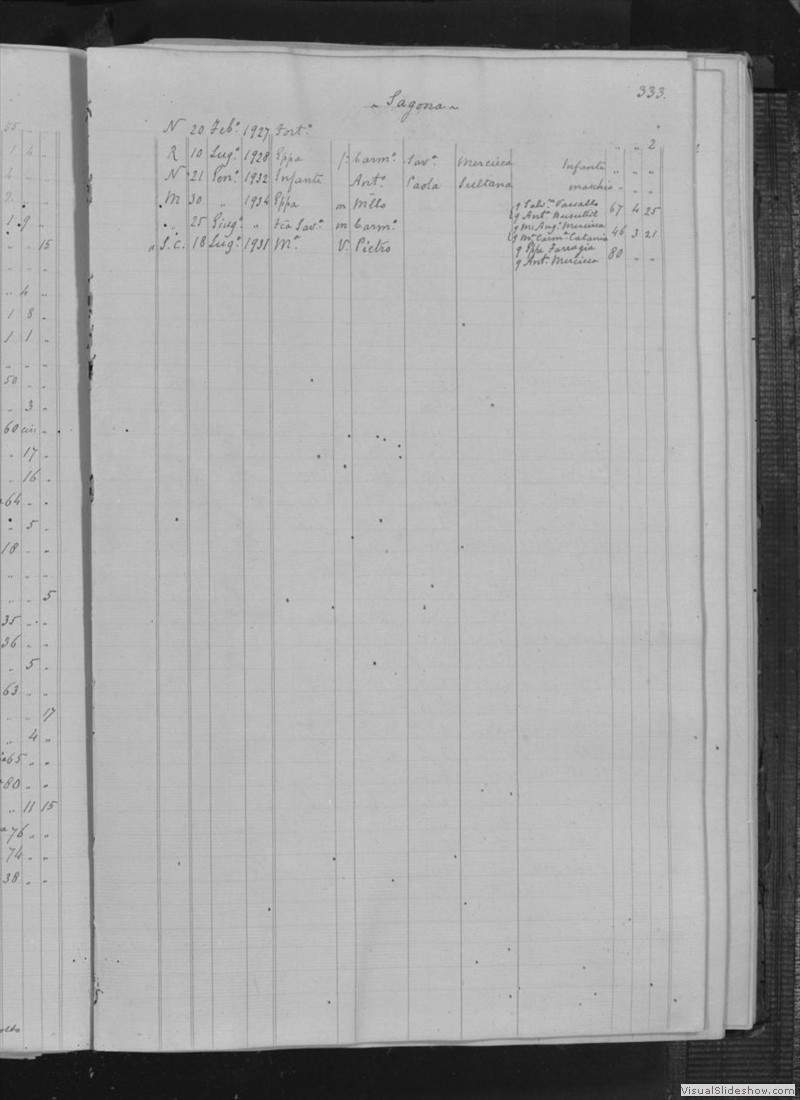 333.
„ Sagona „
N 20 Feb.o 1927 Fort.a „ „ 2
R 10 Lug.o 1928 Eppa f Carm.o Sav.a Mercieca Infante „ „ „
N 21 Gen.o 1932 Infante Ant.o Paola Sultana maschio „ „ „
M 30 „ 1934 Eppa m Mllo q Salv.e Vassallo 67 4 25
q Ant.a
„ 25 Giug.o „ Sav.a m Carm.o q M. Ang.o Mercieca 46 3 21
q M.a Carm.a Catania
„ S.C. 18 Lug.o 1931 M.a V. Pietro q Eppe Farrugia 80 „ „
q Ant.a Mercieca
4
1 9
15
4
1 8
1 1
50
3
60
17
16
64
5
18
5
35
36
5
63
17
4
65
80
11 15
76
74
38
VisualSlideshow.com